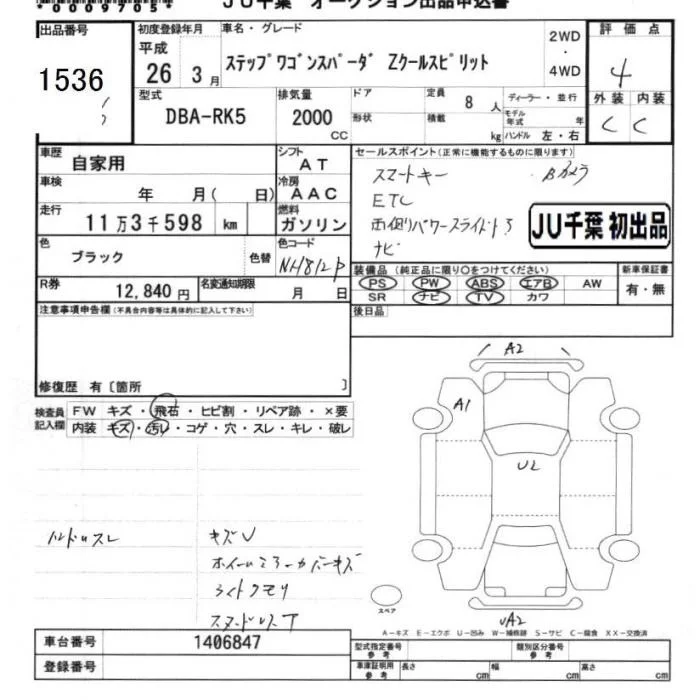 *0009705*
JU千葉 オークション出品申込書
出品番号
1536
初度登録年月
平成
26 3月
車名・グレード
ステップワゴンスパーダ Zクールスピリット
2WD
・
4WD
評価点
4
外装 内装
C C
型式
DBA-RK5
排気量
2000
CC
ドア
形状
定員
8人
積載
kg
ディーラー・並行
モデル年式 年
ハンドル 左・右
車歴
自家用
シフト
AT
車検
年 月( 日)
冷房
AAC
走行
11万3千598 km
燃料
ガソリン
色
ブラック
色替
色コード
NH812P
R券
12,840円
名変通知期限
月 日
セールスポイント(正常に機能するものに限ります)
スマートキー Bカメラ
ETC
両側パワースライドドア
ナビ
JU千葉 初出品
装備品(純正品に限り○をつけてください)
PS PW ABS エアB AW
SR ナビ TV カワ
新車保証書
有・無
後日品
注意事項申告欄(不具合内容等は具体的に記入して下さい)
修復歴 有〔箇所 〕
検査員
記入欄
FW キズ・飛石・ヒビ割・リペア跡・×要
内装 キズ・汚レ・コゲ・穴・スレ・キレ・破レ
ハンドルスレ
キズU
ホイールミラーカバーキズ
ライトクモリ
スタッドレスT
A2
A1
U2
UA2
スペア
A-キズ E-エクボ U-凹み W-補修跡 S-サビ C-腐食 XX-交換済
車台番号
1406847
登録番号
型式指定番号
参考
類別区分番号
参考
車庫証明用
参考
長さ cm 幅 cm 高さ cm